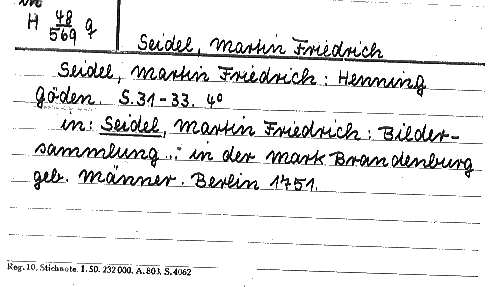 H 48/569 g
Seidel, Martin Friedrich
Seidel, Martin Friedrich: Henning
Göden. S.31-33. 4°
in: Seidel, Martin Friedrich: Bilder-
sammlung ... in der Mark Brandenburg
geb. Männer. Berlin 1751.
Reg. 10, Stichnote. 1. 50. 232 000. A. 803. S. 4062